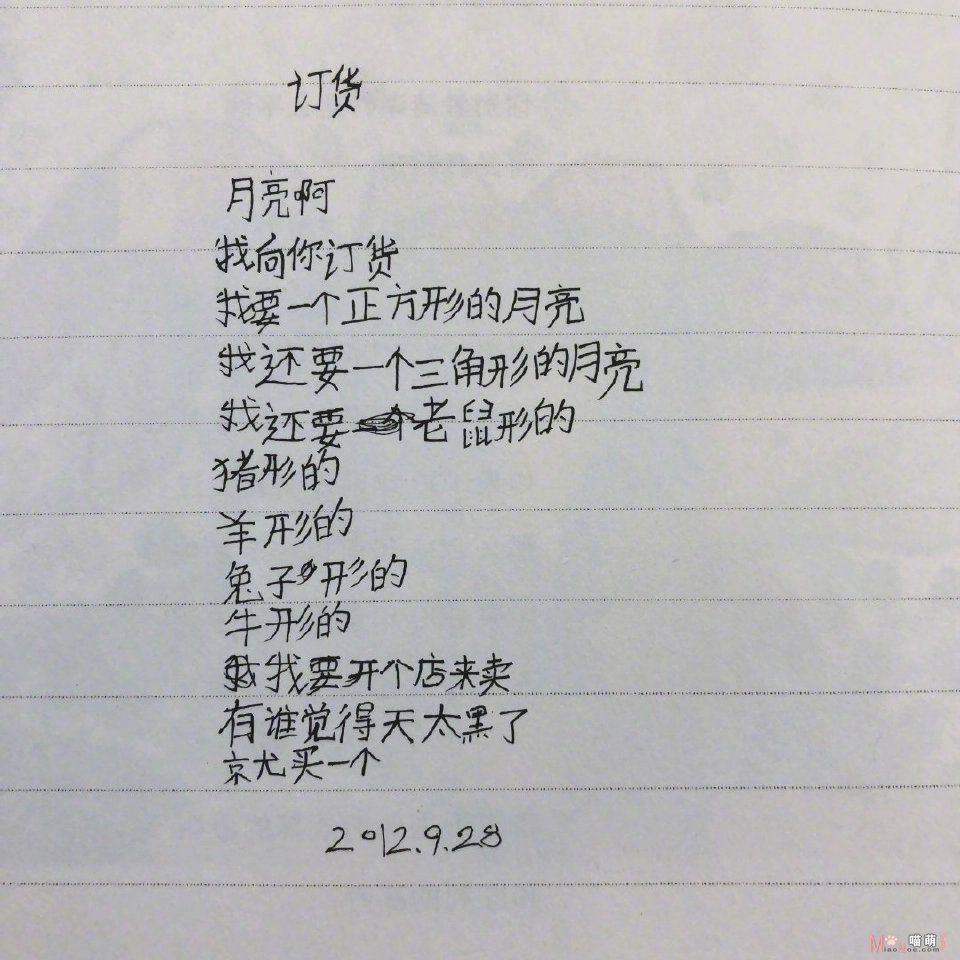 订货
月亮啊
我向你订货
我要一个正方形的月亮
我还要一个三角形的月亮
我还要老鼠形的
猪形的
羊形的
兔子形的
牛形的
我要开个店来卖
有谁觉得天太黑了
就买一个
2012.9.28
喵萌
MiaoMoe.com